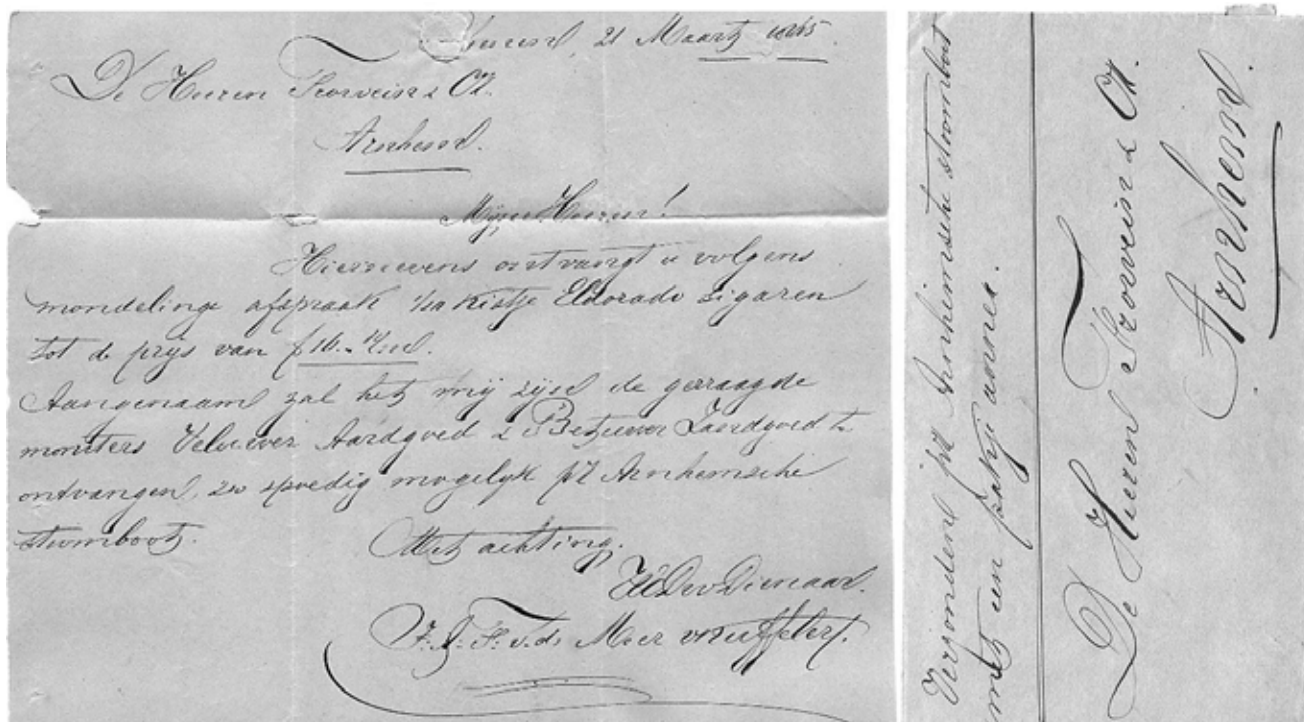 21 Maart 1865.
De Heeren & Co.
Arnhem.
Mijne Heeren!
Hiernevens ontvangt u volgens
mondelinge afspraak kistje Eldorado sigaren
tot de prijs van f 16.
Aangenaam zal het mij zijn de gevraagde
monsters Aardgoed & Zandgoed te
ontvangen, zoo spoedig mogelijk pr Arnhemsche
stoomboot.
Met achting.
UEDwDienaar.
v.d. Meer
Verzonden pr Arnhemsche stoomboot
met een pakje annex.
De Heeren & Co.
Arnhem.